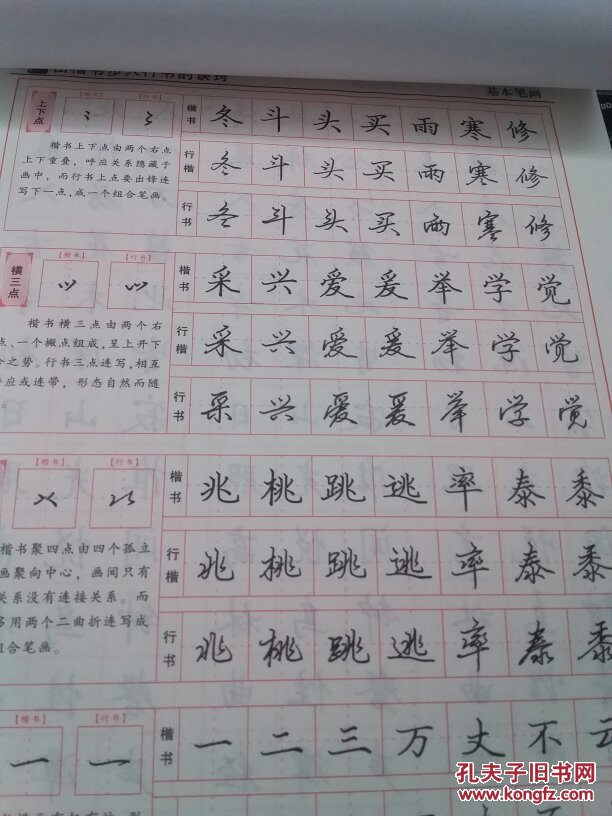 由楷书步入行书的诀窍
基本笔画
上下点
【楷书】 【行书】
楷书上下点由两个右点
上下重叠，呼应关系隐藏于
画中，而行书上点要出锋连
写下一点，成一个组合笔画。
楷书 冬 斗 头 买 雨 寒 修
行楷 冬 斗 头 买 雨 寒 修
行书 冬 斗 头 买 雨 寒 修
横三点
【楷书】 【行书】
楷书横三点由两个右
点、一个撇点组成，呈上开下
合之势。行书三点连写，相互
呼应或连带，形态自然而随
。
楷书 采 兴 爱 爰 举 学 觉
行楷 采 兴 爱 爰 举 学 觉
行书 采 兴 爱 爰 举 学 觉
【楷书】 【行书】
楷书聚四点由四个孤立
画聚向中心，画间只有
关系没有连接关系。而
多用两个二曲折连写成
组合笔画。
楷书 兆 桃 跳 逃 率 泰 黍
行楷 兆 桃 跳 逃 率 泰 黍
行书 兆 桃 跳 逃 率 泰 黍
【楷书】 【行书】
一 一
楷书 一 二 三 万 丈 不 云
孔夫子旧书网
www.kongfz.com